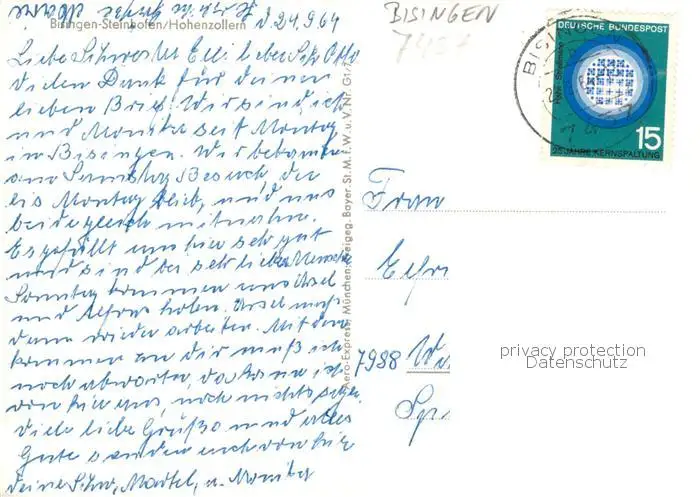 Bisingen-Steinhofen/Hohenzollern
d. 24.9.64
Liebe Schwester Elli, lieber Schw. Otto
Vielen Dank für deinen
lieben Brief. Wir sind, ich
und Monika seit Montag
in Bisingen. Wir bekamen
am Samstag Besuch, der
bis Montag blieb, und uns
beide gleich mitnahm.
Es gefällt uns hier sehr gut
und sind es sehr liebe Mensche
Sonntag kommen uns Ursel
und Alfons holen. Ursel muß
dann wieder arbeiten. Mit dem
kommen zu dir muß ich
noch abwarten, da kann ich
von hier aus, noch nichts sagen.
Viele liebe Grüße und alles
Gute senden euch von hier
deine Schw, u. Monika
Aero-Express, München, Freigeg. Bayer. St. M. f. W. u. V. Nr. G
BISINGEN
DEUTSCHE BUNDESPOST
15
25 JAHRE KERNSPALTUNG
BISIN
Frau
7988
privacy protection
Datenschutz